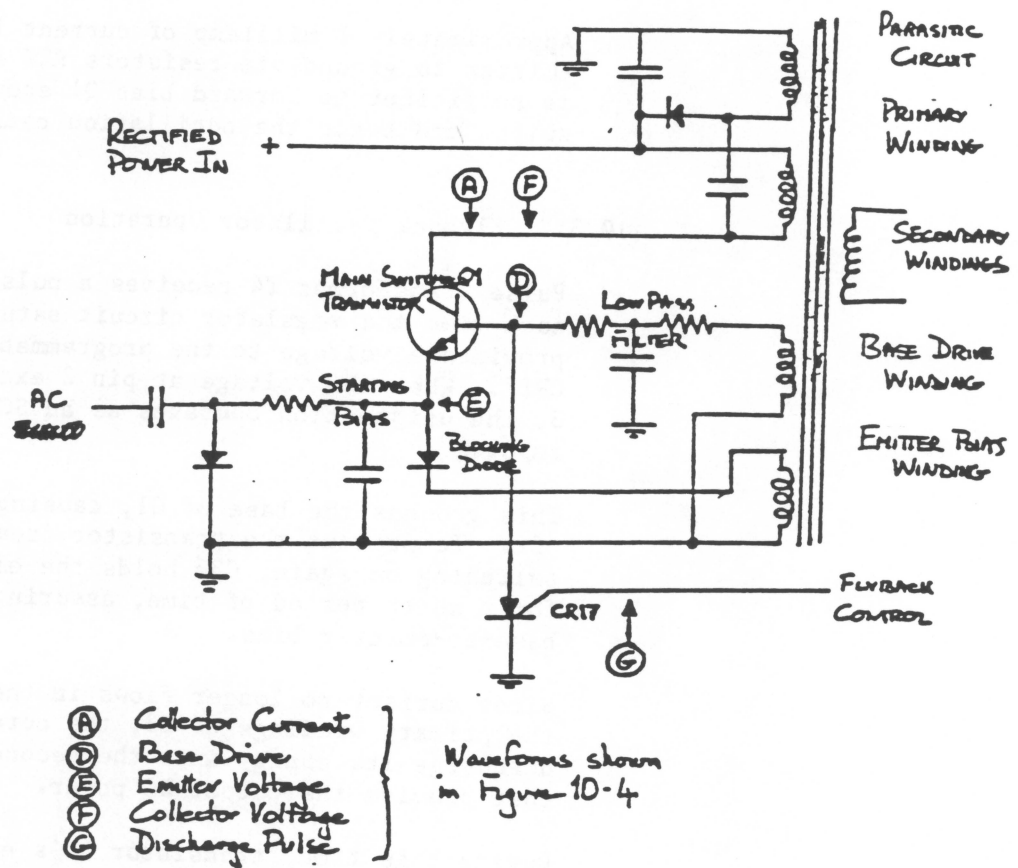 PARASITIC
CIRCUIT
PRIMARY
WINDING
RECTIFIED
POWER IN
+
A
F
SECONDARY
WINDINGS
MAIN SWITCHER
TRANSISTOR
Q1
D
LOW PASS
FILTER
BASE DRIVE
WINDING
STARTING
BIAS
E
AC
BLOCKING
DIODE
EMITTER BIAS
WINDING
FLYBACK
CONTROL
CR17
G
A Collector Current
D Base Drive
E Emitter Voltage
F Collector Voltage
G Discharge Pulse
Waveforms shown
in Figure 10-4